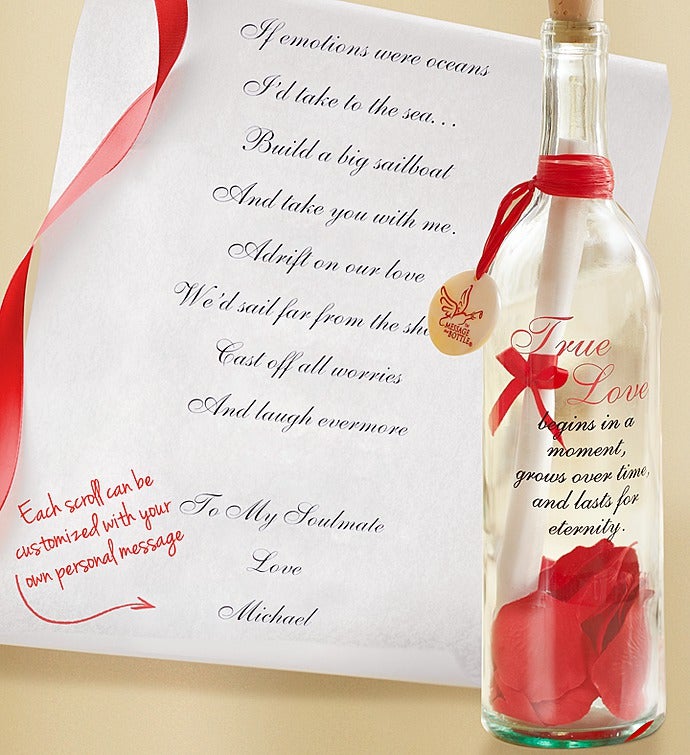 If emotions were oceans
I'd take to the sea...
Build a big sailboat
And take you with me.
Adrift on our love
We'd sail far from the sho
Cast off all worries
And laugh evermore
To My Soulmate
Love
Michael
Each scroll can be
customized with your
own personal message
MESSAGE
BOTTLE®
True
Love
begins in a
moment,
grows over time,
and lasts for
eternity.